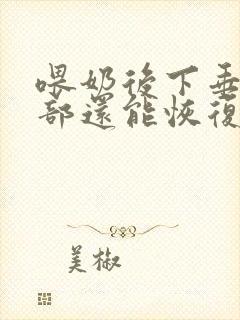 喂奶後下垂
部還能恢復
美椒